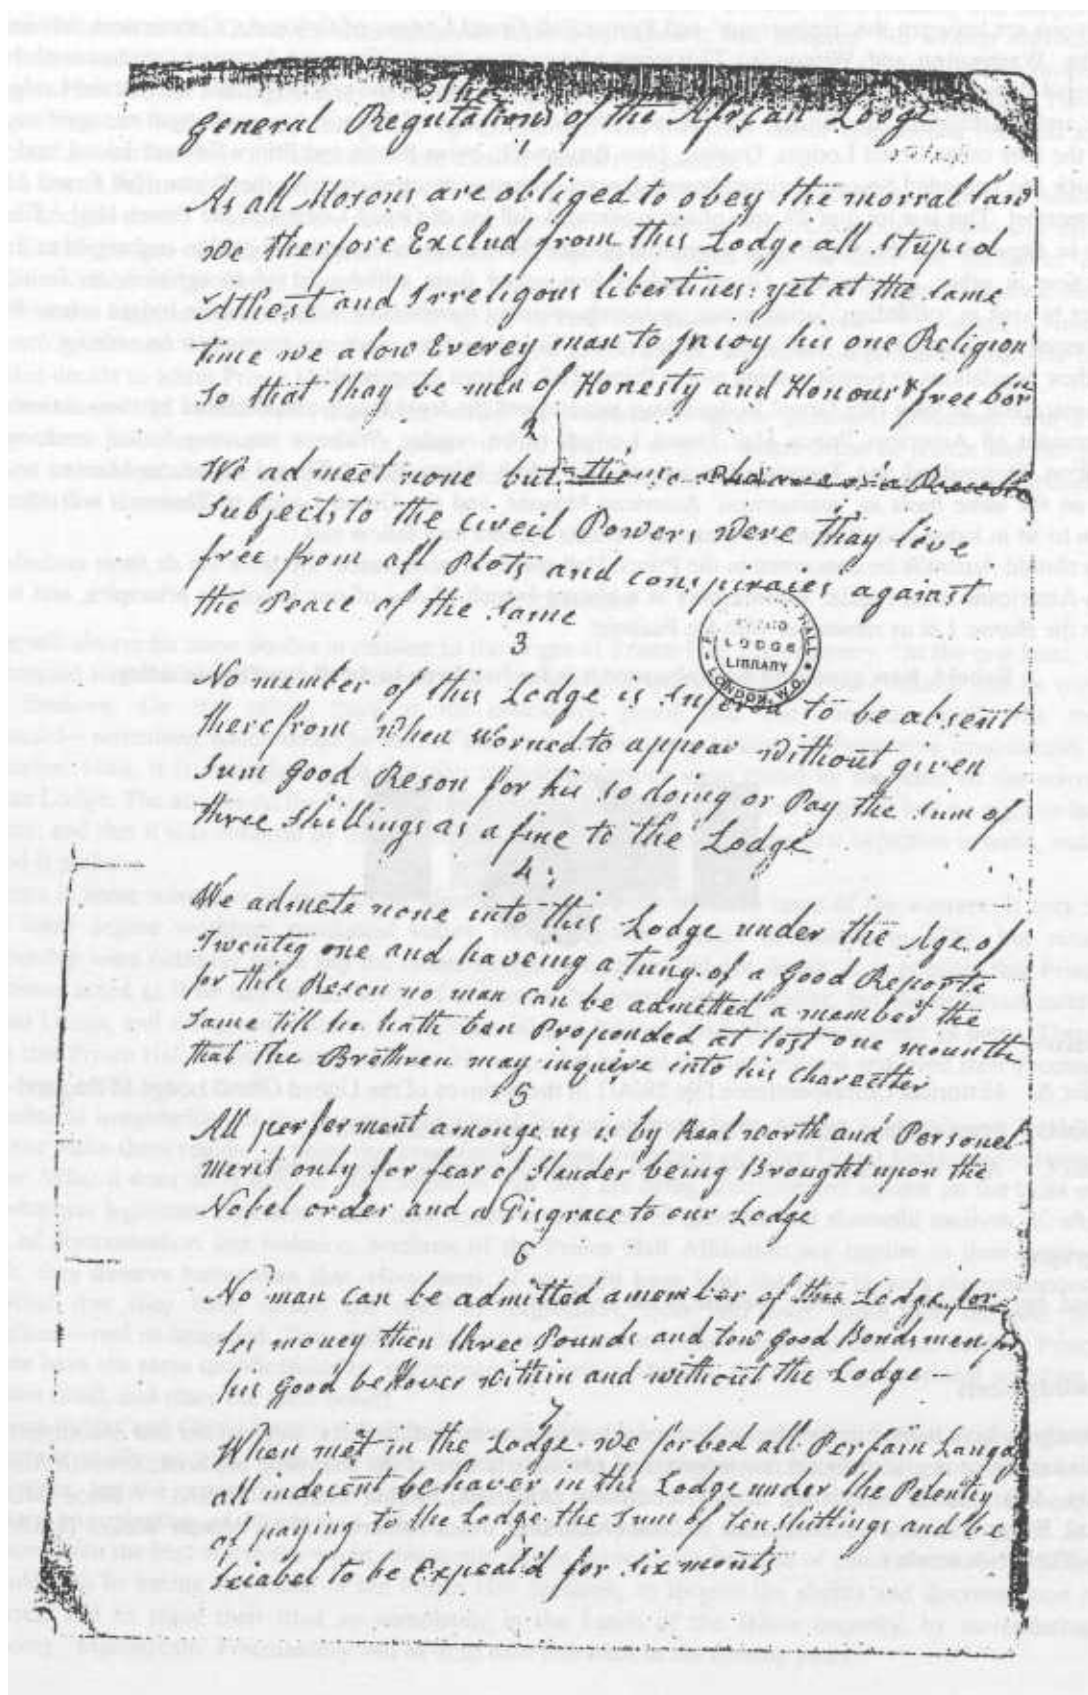 The
General Regutations of the African Lodge
1
As all Morons are obliged to obey the morral law
we therfore Exclud from this Lodge all stupid
Athest and Irreligous libertines: yet at the same
time we alow Everey man to Injoy his one Religion
so that thay be men of Honesty and Honour & free born
2
We admeet none but
subjects to the civeil Powers were thay live
free from all Plots and conspiraces against
the Peace of the same
3
No member of this Lodge is sufered to be absent
therefrom when worned to appear without given
sum good Reson for his so doing or Pay the sum of
three shillings as a fine to the Lodge
4
We admete none into this Lodge under the Age of
Twentey one and haveing a tung of a Good Reporte
for this Reson no man can be admitted a member of the
same till he hath ben Proponded at lest one mounth
that the Brethren may inquire into his charectter
5
All perferment amonge us is by Real worth and Personel
merit only for fear of Slander being Brought upon the
Nobel order and a Disgrace to our Lodge
6
No man can be admitted a member of this Lodge for
les money then three Pounds and tow good Bondsmen for
his good behaver within and without the Lodge
7
When met in the Lodge we forbed all Perfain Langag
all indecent behaver in the Lodge under the Pelenty
of paying to the Lodge the sum of ten shillings and be
Leiabel to be Expeald for six months
LODGE
LIBRARY
HALL
LONDON, W.C.